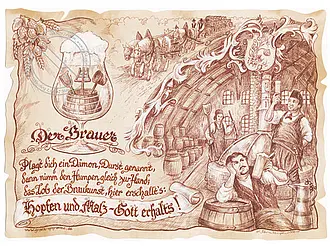 Der Brauer
Plagt dich ein Dämon, Durst genannt,
dann nimm den Humpen gleich zur Hand,
das Lob der Braukunst, hier erschalle's:
Hopfen und Malz - Gott erhalts!